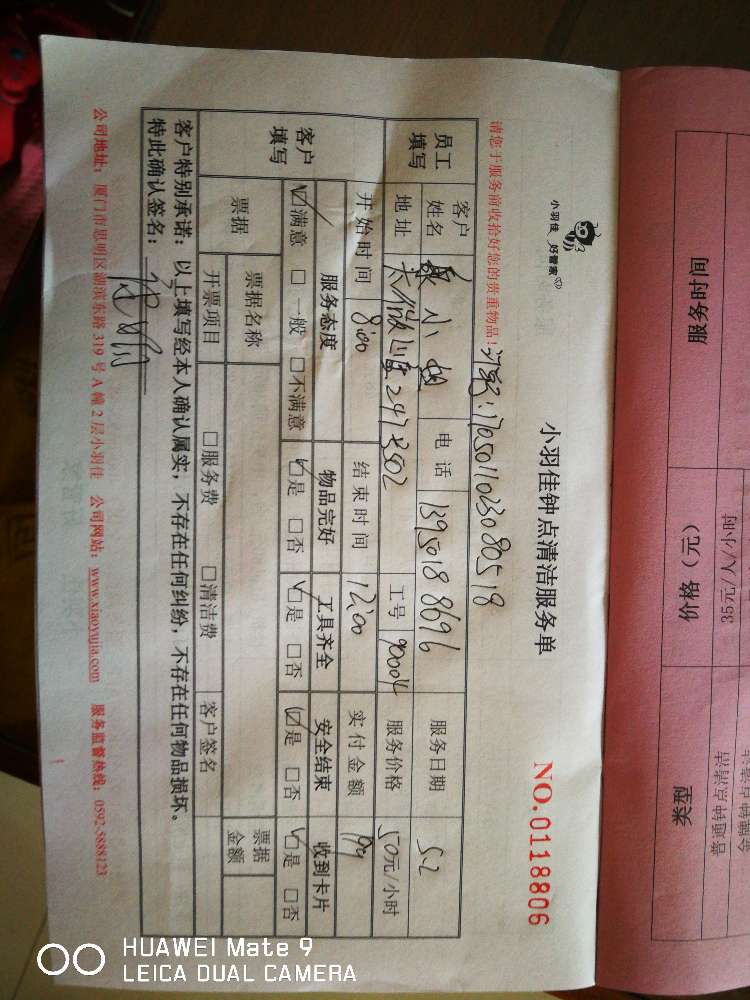 小羽佳 好管家
小羽佳钟点清洁服务单
NO.0118806
请您于服务前收拾好您的贵重物品!
1705011023080518
员工填写
客户姓名 小姐 电话 13950188696 服务日期 5-2
地址 247-2502 工号 90004 服务价格 50元/小时
开始时间 8:00 结束时间 12:00 实付金额 199
客户填写
服务态度 物品完好 工具齐全 安全结束 收到卡片
☑满意 □一般 □不满意 ☑是 □否 ☑是 □否 ☑是 □否 ☑是 □否
票据 票据名称 票据金额
开票项目 □服务费 □清洁费 客户签名
客户特别承诺:以上填写经本人确认属实,不存在任何纠纷,不存在任何物品损坏。
特此确认签名:
公司地址:厦门市思明区湖滨东路 319 号 A 幢 2 层小羽佳 公司网站:www.xiaoyujia.com 服务监督热线:0592-5888123
服务时间 价格(元) 类型
35元/人/小时 普通钟点清洁
HUAWEI Mate 9
LEICA DUAL CAMERA